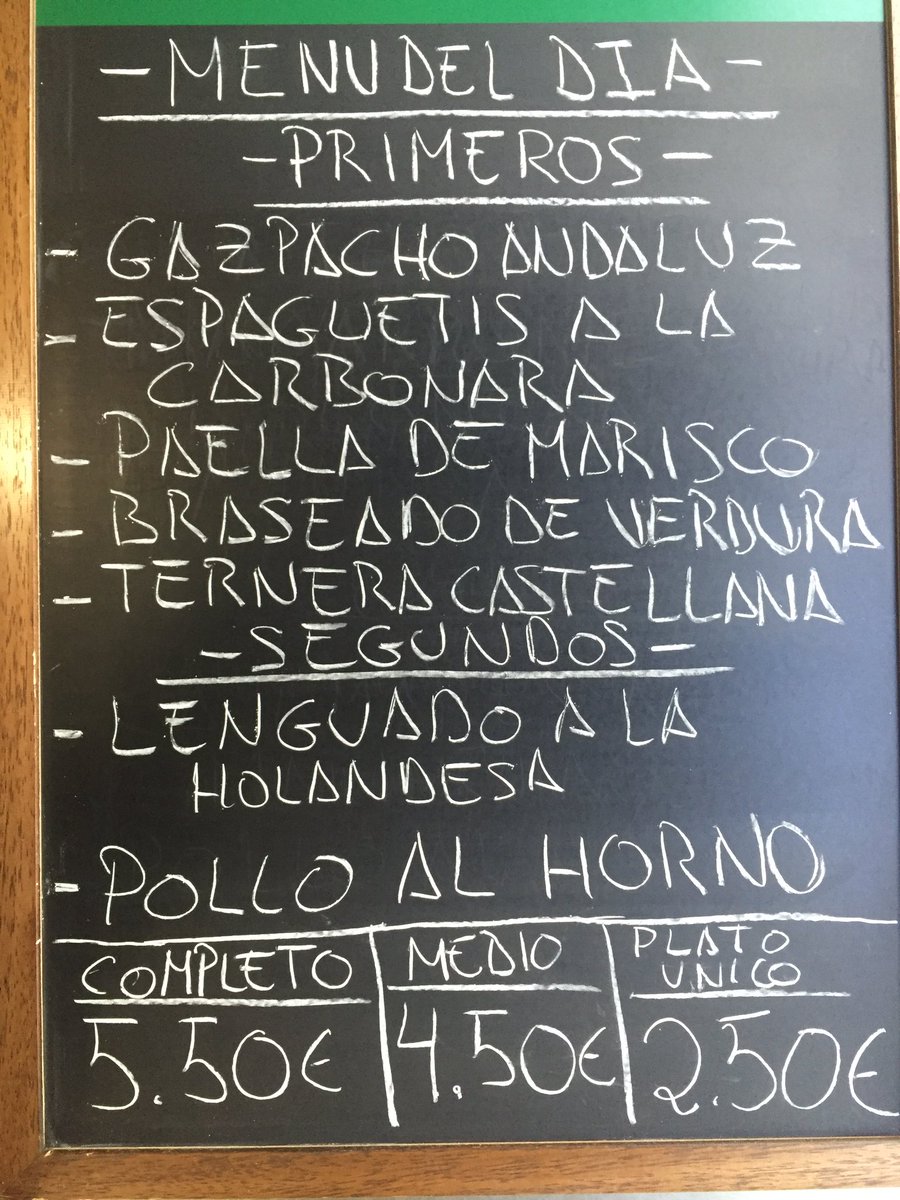 - MENU DEL DIA -
- PRIMEROS -
- GAZPACHO ANDALUZ
- ESPAGUETIS A LA
CARBONARA
- PAELLA DE MARISCO
- BRASEADO DE VERDURA
- TERNERA CASTELLANA
- SEGUNDOS -
- LENGUADO A LA
HOLANDESA
- POLLO AL HORNO
COMPLETO
5.50€
MEDIO
4.50€
PLATO
UNICO
2.50€